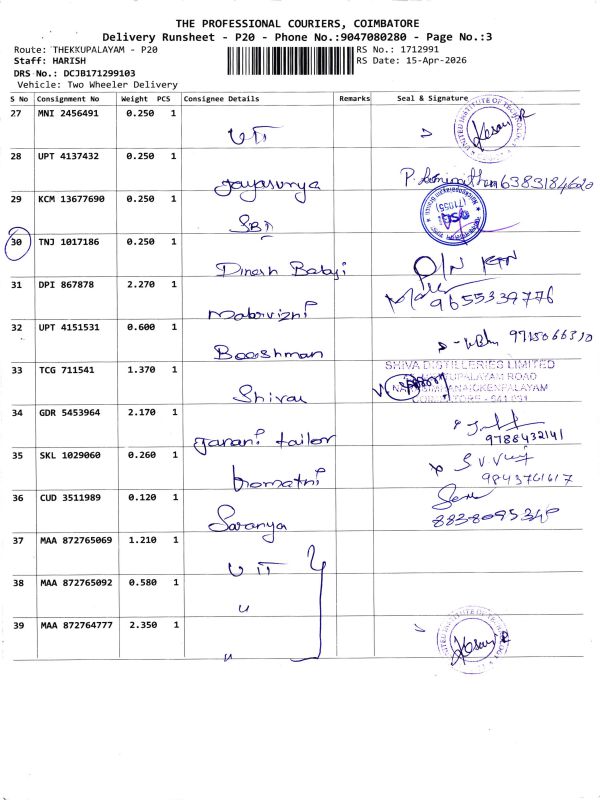 THE PROFESSIONAL COURIERS, COIMBATORE
Delivery Runsheet - P20 - Phone No.:9047080280 - Page No.:3
Route: THEKKUPALAYAM - P20
RS No.: 1712991
Staff: HARISH
RS Date: 15-Apr-2026
DRS No.: DCJB171299103
Vehicle: Two Wheeler Delivery
S No Consignment No Weight PCS Consignee Details Remarks Seal & Signature
27 MNI 2456491 0.250 1
UIT
UNITED INSTITUTE OF TECHNOLOGY
28 UPT 4137432 0.250 1
Jayasurya
6383184620
29 KCM 13677690 0.250 1
SBI
(71055)
30 TNJ 1017186 0.250 1
Dinesh Babji
D/N
31 DPI 867878 2.270 1
9655339776
32 UPT 4151531 0.600 1
Booshman
9715066310
33 TCG 711541 1.370 1
Shiva
SHIVA DISTILLERIES LIMITED
34 GDR 5453964 2.170 1
Janani tailor
9788432141
35 SKL 1029060 0.260 1
S V
9843761617
36 CUD 3511989 0.120 1
Saranya
8838095340
37 MAA 872765069 1.210 1
UIT
38 MAA 872765092 0.580 1
"
39 MAA 872764777 2.350 1
"
UNITED INSTITUTE OF TECHNOLOGY